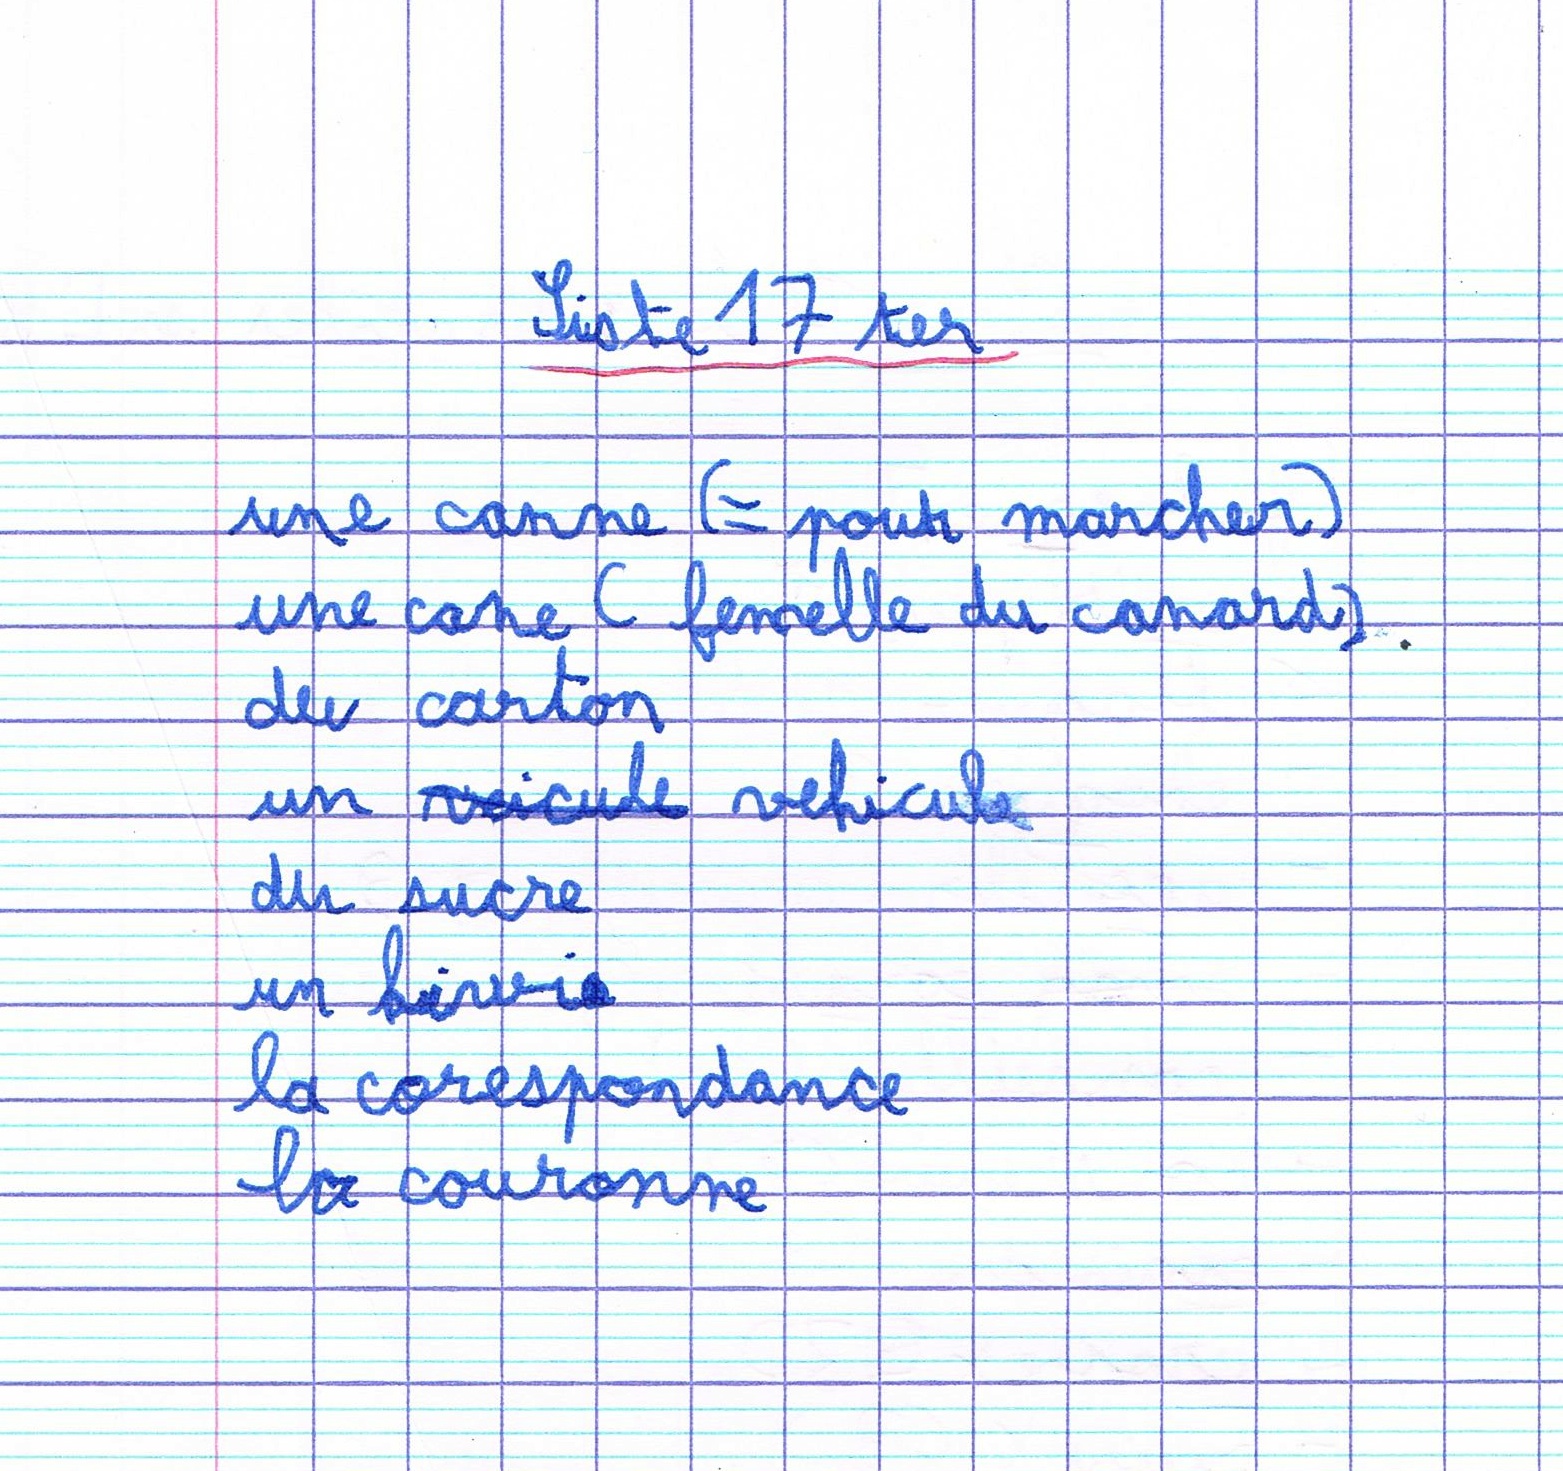 Liste 17 ter
une canne (= pour marcher)
une cane ( femelle du canard).
du carton
un veicule vehicule
du sucre
un
la corespondance
la couronne